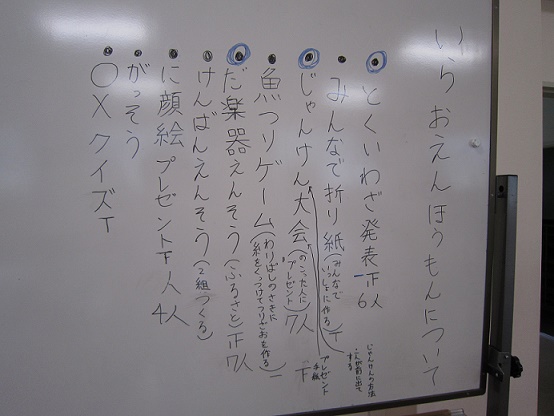 いらおえんほうもんについて
とくいわざ発表正一6人
じゃんけんの方法
二人が前に出て
する
みんなで折り紙(みんなでいっしょに作る)T
じゃんけん大会(のこった人にプレゼント)7人 下
プレゼント
手紙
魚つりゲーム(わりばしのさきに糸をくっつけてつりざおを作る)一
だ楽器えんそう(ふるさと)正T 7人
けんばんえんそう(2組つくる)
に顔絵プレゼント下人 4人
がっそう
○×クイズT